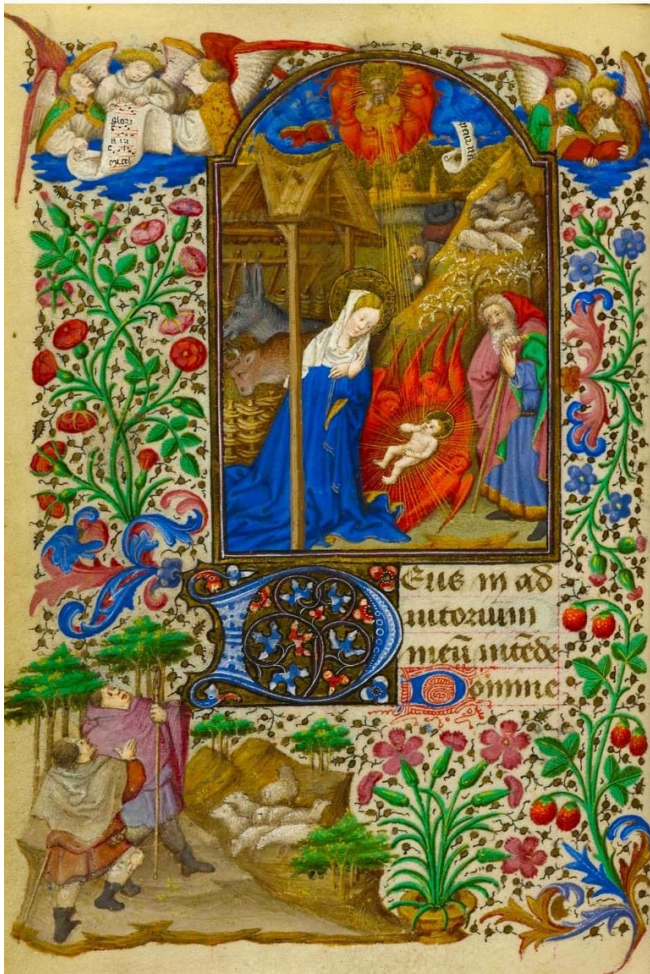 DEus in ad
iutorium
meū intēde
Domine